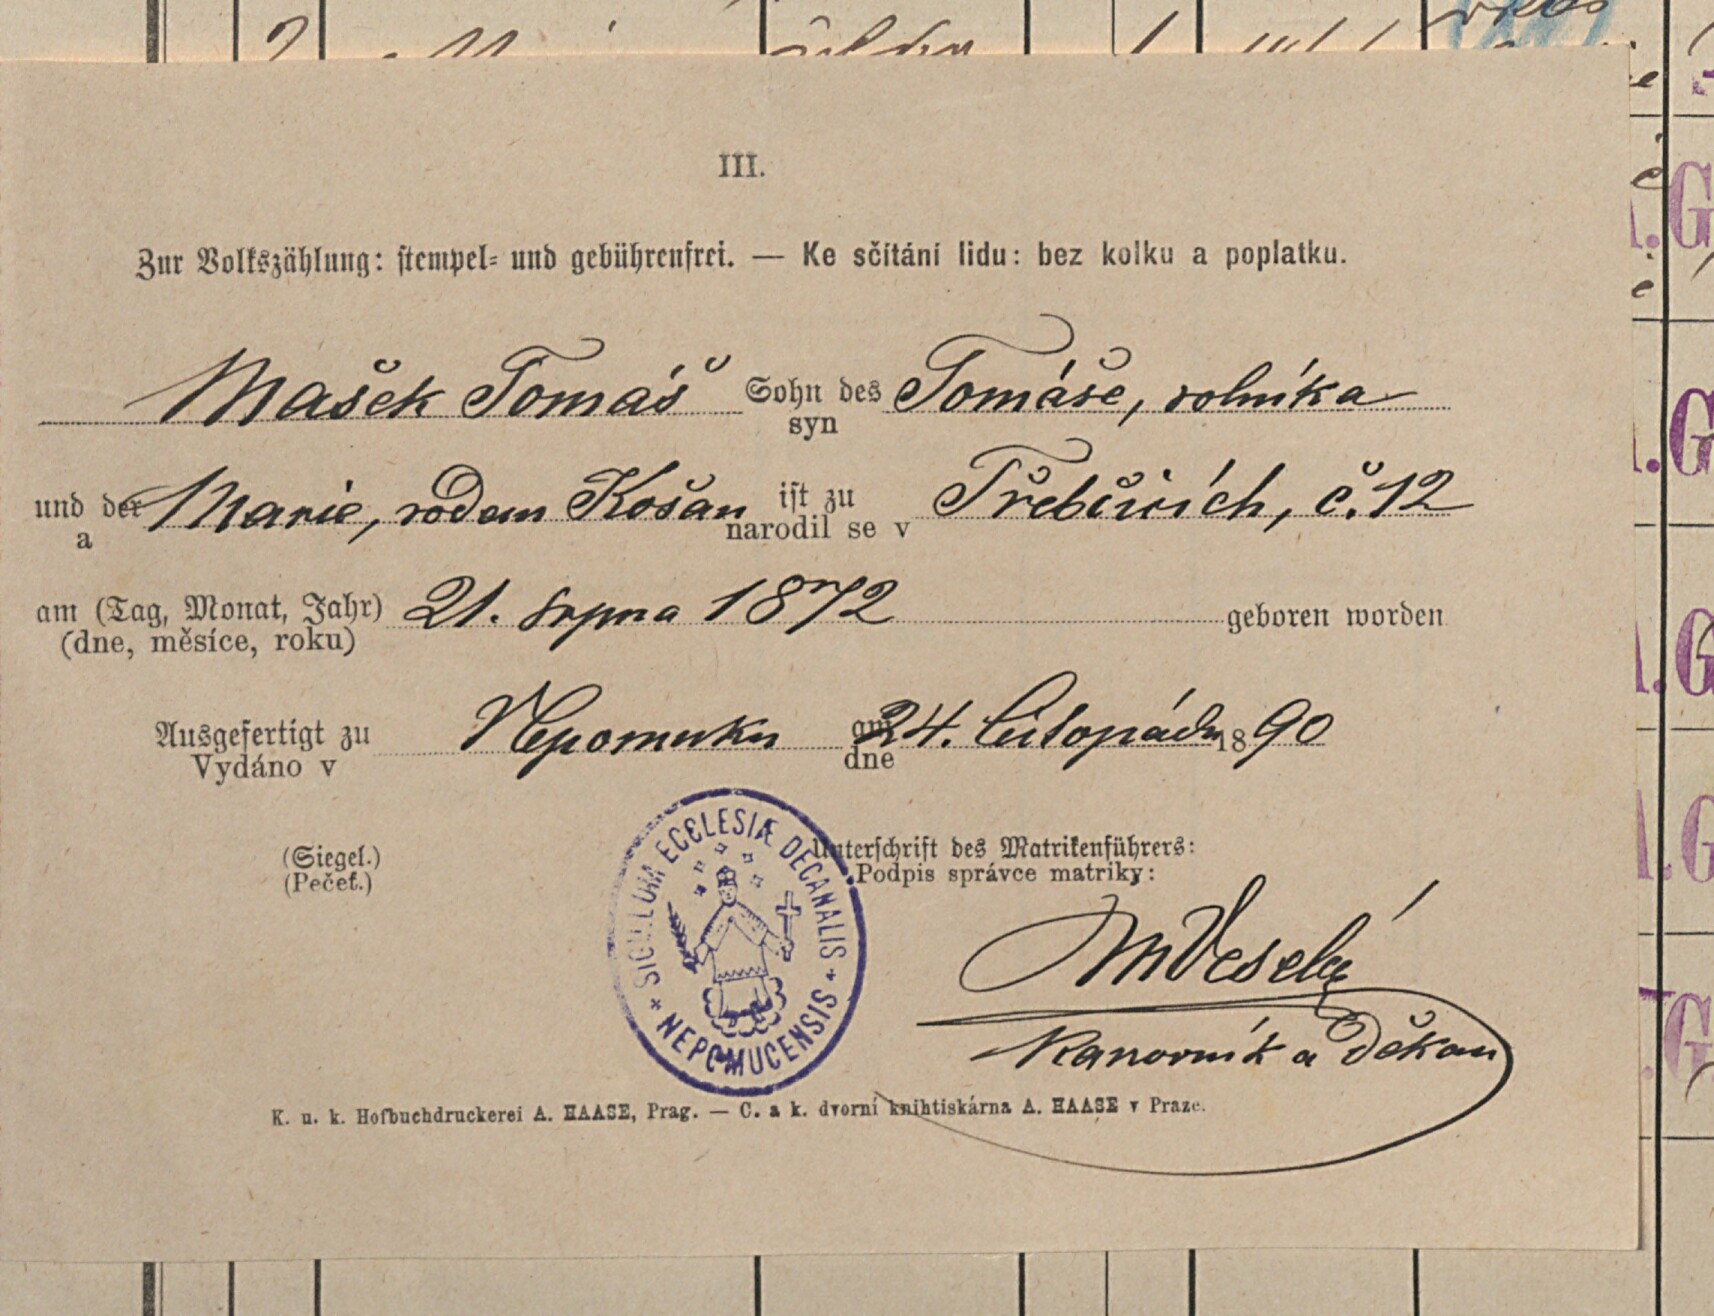 III.
Zur Volkszählung: stempel- und gebührenfrei. — Ke sčítání lidu: bez kolku a poplatku.
Mašek Tomáš Sohn des Tomáše, rolníka
syn
und der Marie, rodem Košan ist zu Třebčicích, č. 12
a narodil se v
am (Tag, Monat, Jahr) 21. srpna 1872 geboren worden
(dne, měsíce, roku)
Ausgefertigt zu Nepomuku am 24. listopádu 1890
Vydáno v dne
(Siegel.) Unterschrift des Matrikenführers:
(Pečeť.) Podpis správce matriky:
SIGILLUM ECCLESIÆ DECANALIS
NEPOMUCENSIS
MVeselý
Kanovník a Děkan
K. u. k. Hofbuchdruckerei A. HAASE, Prag. — C. a k. dvorní knihtiskárna A. HAASE v Praze.